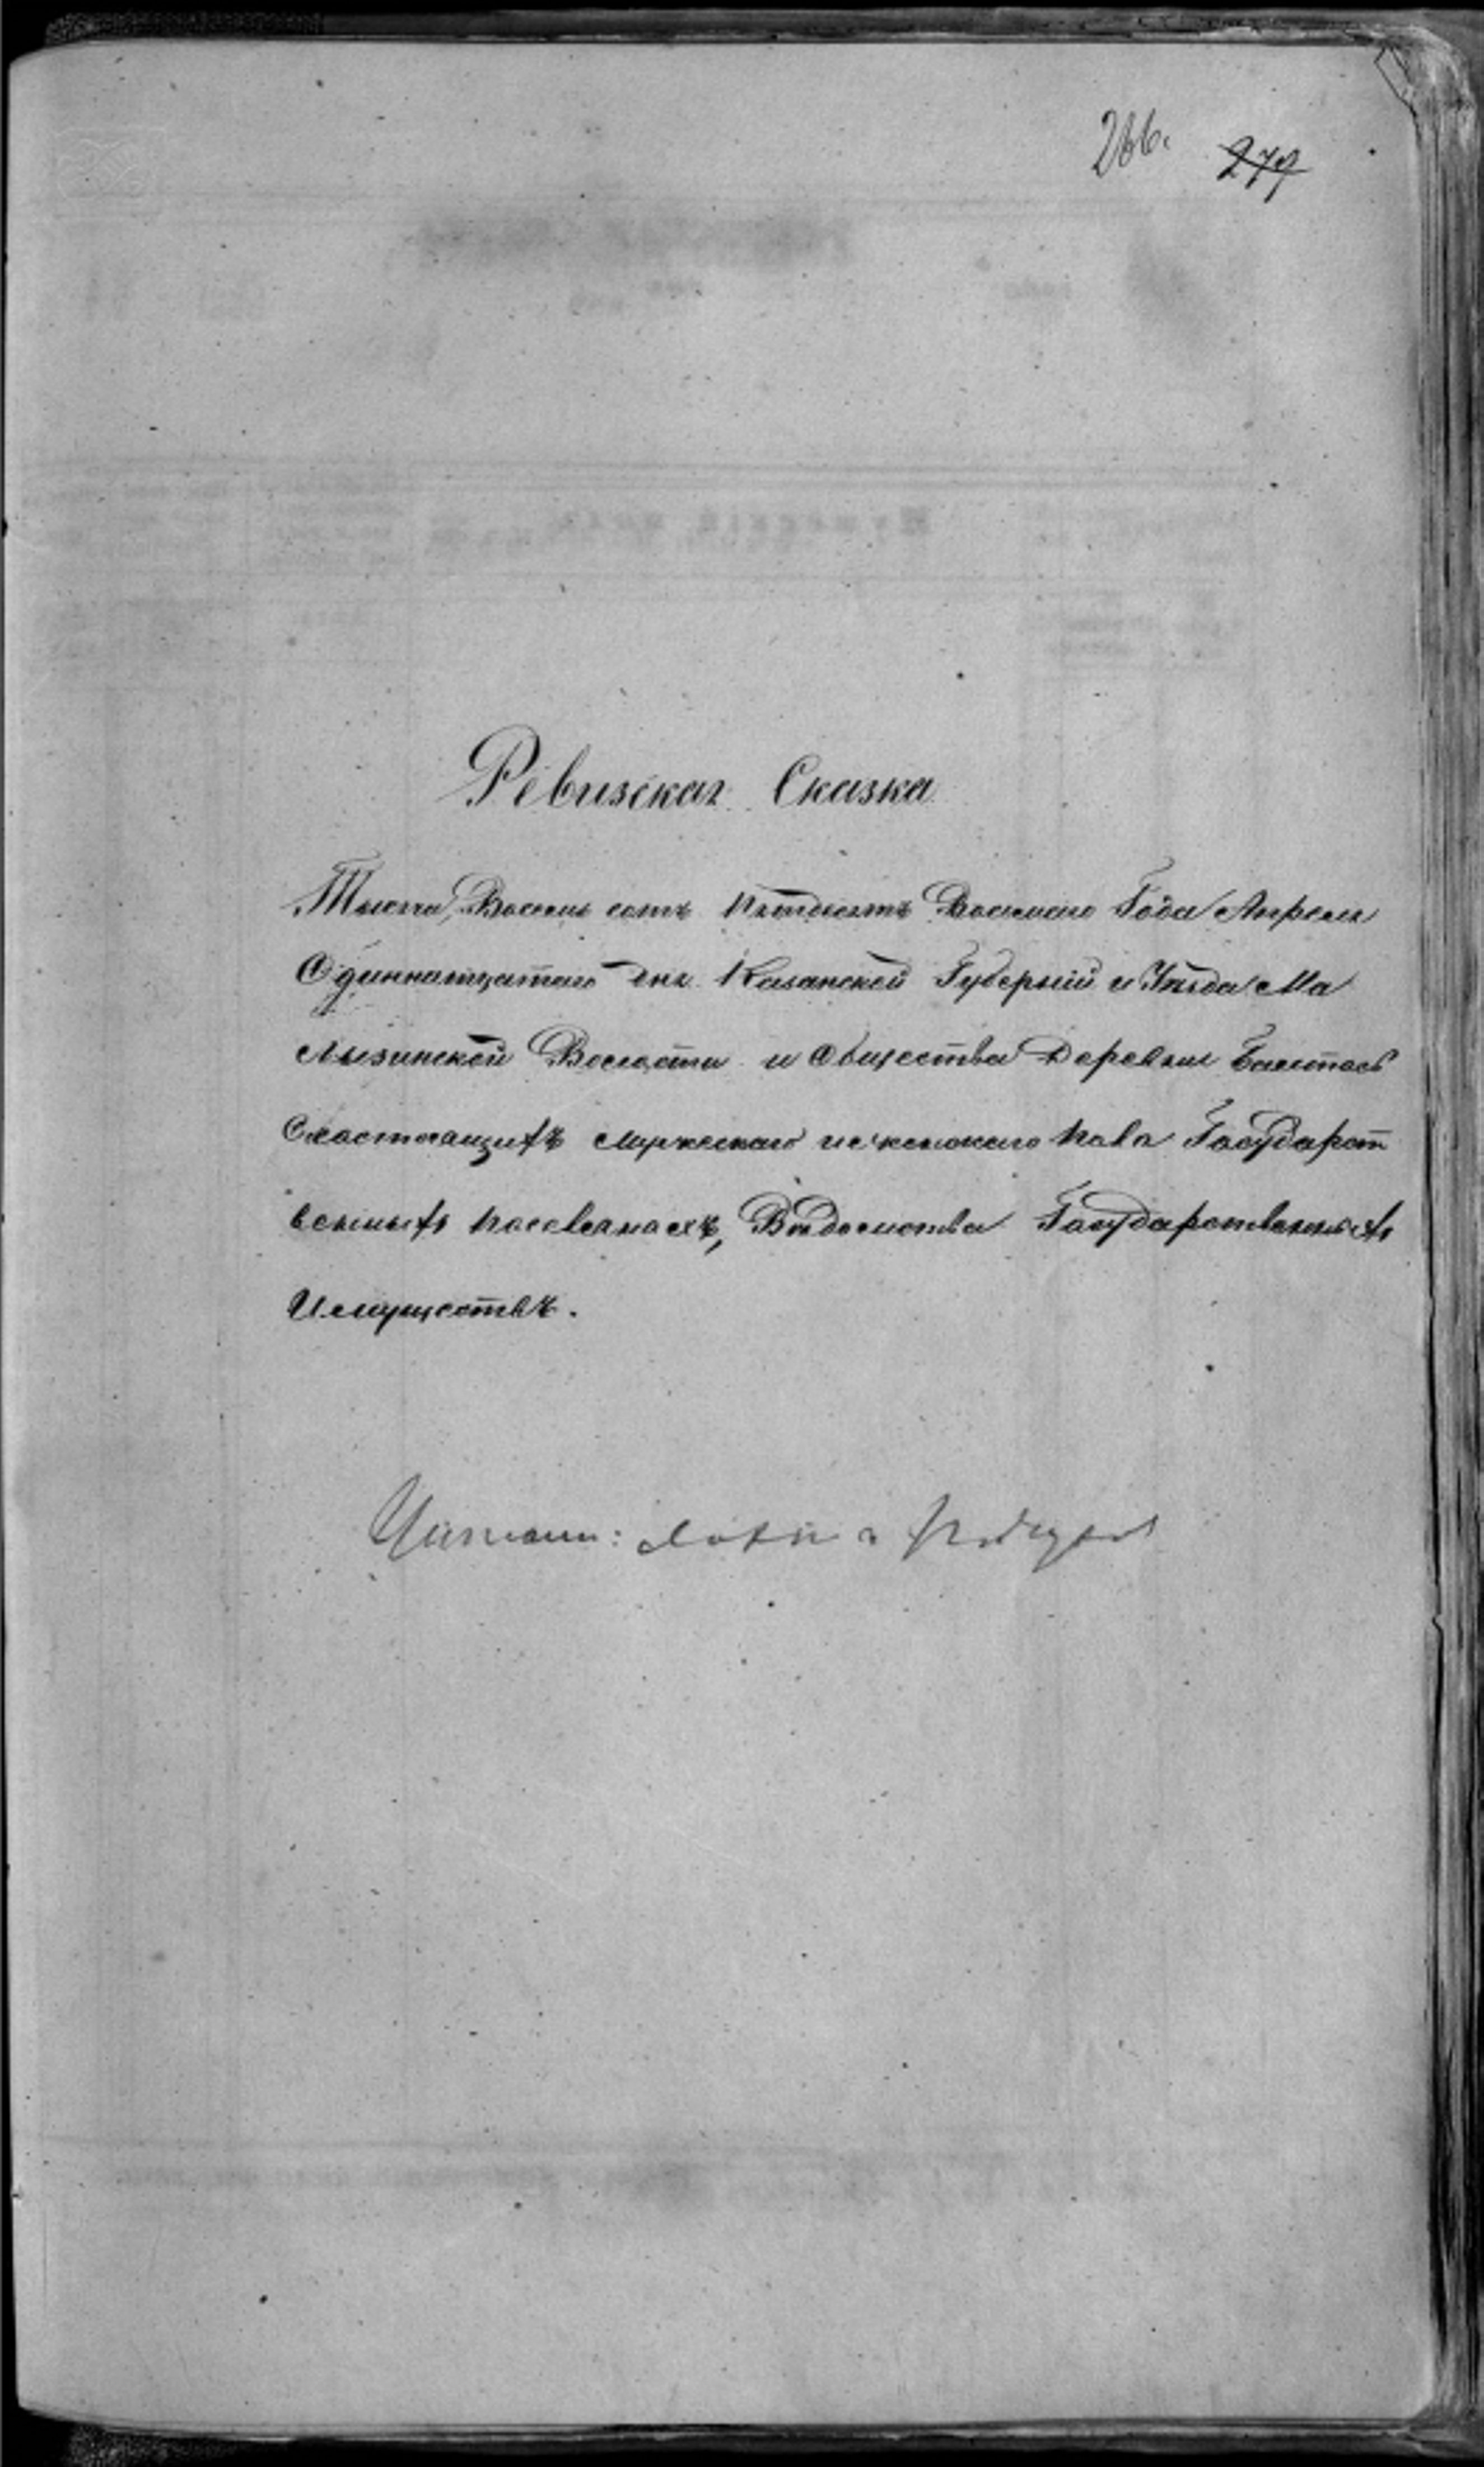 266. 277
Ревизская Сказка
Тысяча Восемь сотъ Пятдесятъ Восьмаго Года Апреля
Одиннатцатаго дня Казанской Губерніи и Уѣзда Ма
мызинской Волости и Общества Деревни
Состоящихъ мужескаго и женскаго пола Государст
венныхъ поселянахъ, Вѣдомства Государственныхъ
Имуществъ.